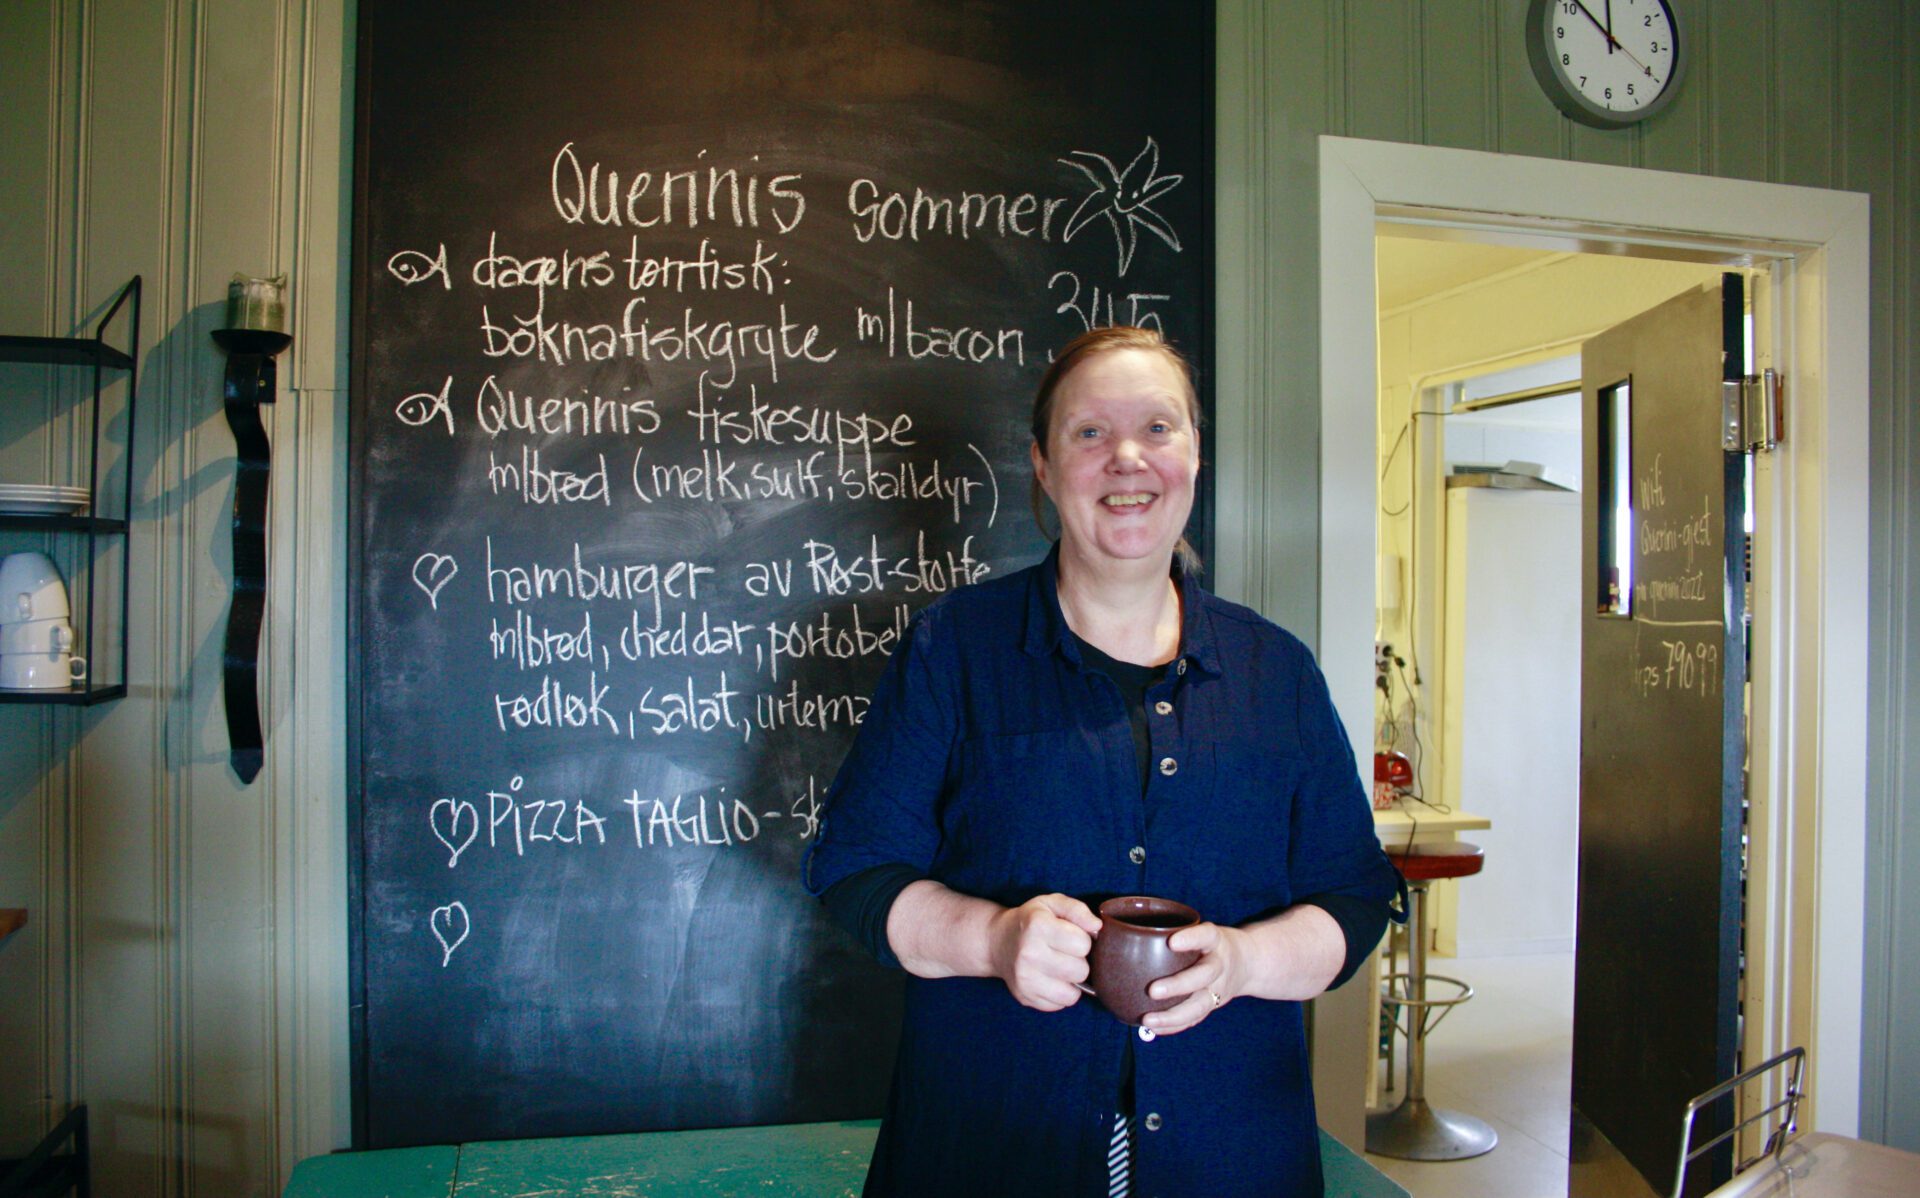 Querinis Sommer
dagens tørrfisk:
boknafiskgryte m/bacon 345
Querinis fiskesuppe
m/brød (melk, sulf, skalldyr)
hamburger av Røst-storfe
m/brød, cheddar, portobell
rødløk, salat, urtema
PIZZA TAGLIO - sk
10 2
9 3
8 4
7 6 5
wifi
Querini-gjest
querini2022
Vipps 79099